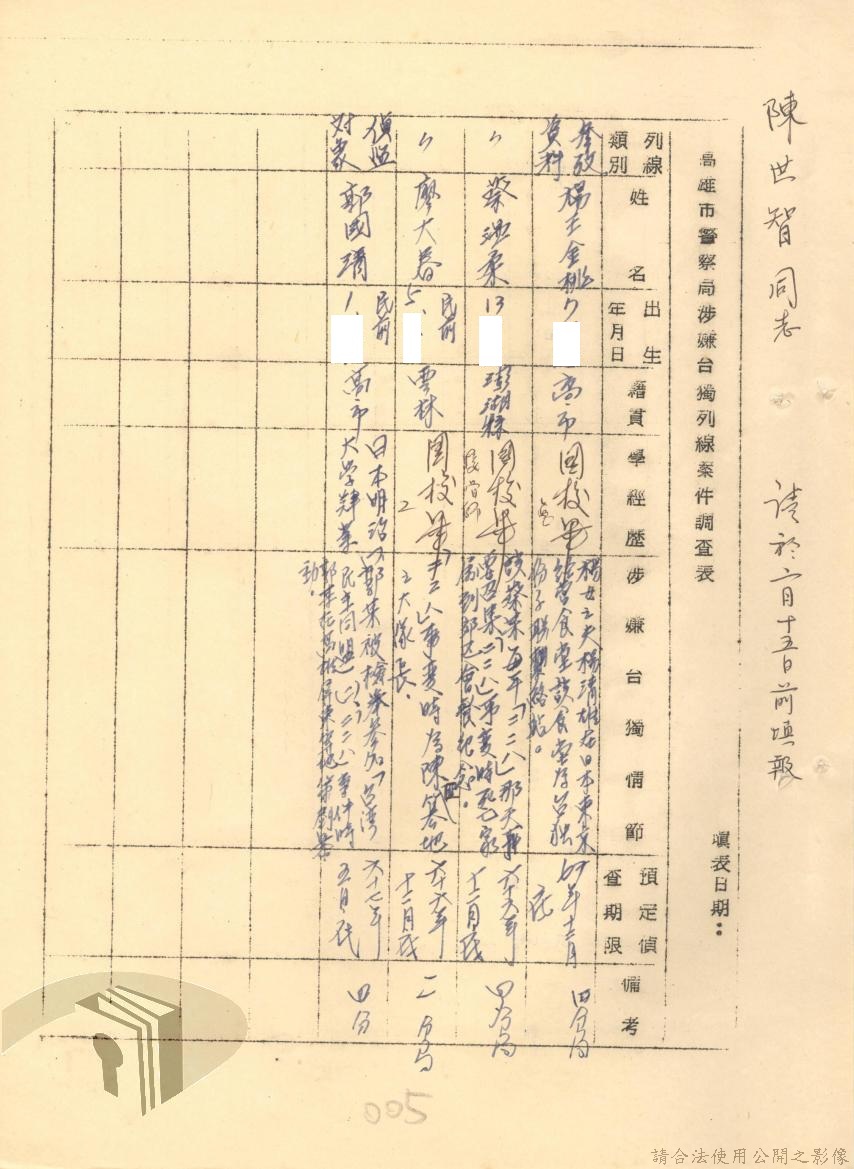 陳世智同志 請於六月十五日前填報
高雄市警察局涉嫌台獨列線案件調查表
填表日期:
列線類別
姓名
出生年月日
籍貫
學經歷
涉嫌台獨情節
預定偵查期限
備考
參攷資料
楊王金桃
7
高市
國校畢
楊女之夫楊清雄在日本東京
經營食堂該食堂為台獨
份子聯絡站。
69年十二月底
四分局
〃
蔡 柔
13
澎湖縣
國校畢
該蔡某每年「二二八」那天
二二八事變時死
紀念。
六十六年
十二月底
四分局
〃
廖大春
民前
5.
雲林
國校畢
「二二八」事變時為陳篡地
之大隊長。
六十六年
十二月底
二分局
偵監對象
郭國清
民前
1.
高市
日本明治
大學肄業
(一)郭某被檢舉參加「台灣
民主同盟」(二)二二八事件時
郭某在高雄屏東等地策劃暴
動。
六十七年
五月底
四分
005
請合法使用公開之影像